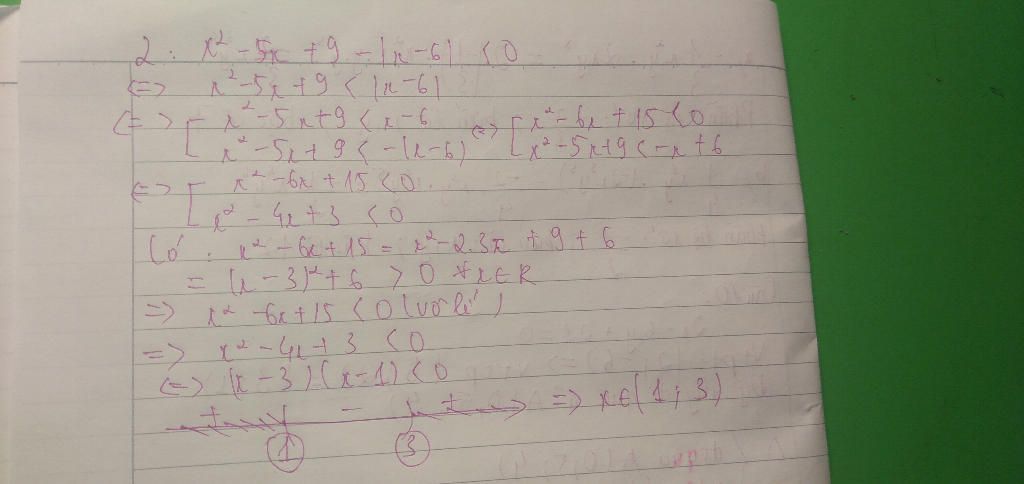 2. x² - 5x + 9 - |x - 6| < 0
<=> x² - 5x + 9 < |x - 6|
<=> [ x² - 5x + 9 < x - 6 <=> [ x² - 6x + 15 < 0
x² - 5x + 9 < -(x - 6) x² - 5x + 9 < -x + 6
<=> [ x² - 6x + 15 < 0
x² - 4x + 3 < 0
Có : x² - 6x + 15 = x² - 2.3x + 9 + 6
= (x - 3)² + 6 > 0 ∀x ∈ R
=> x² - 6x + 15 < 0 (vô lí)
=> x² - 4x + 3 < 0
<=> (x - 3)(x - 1) < 0
+ - + => x ∈ (1 ; 3)
1 3